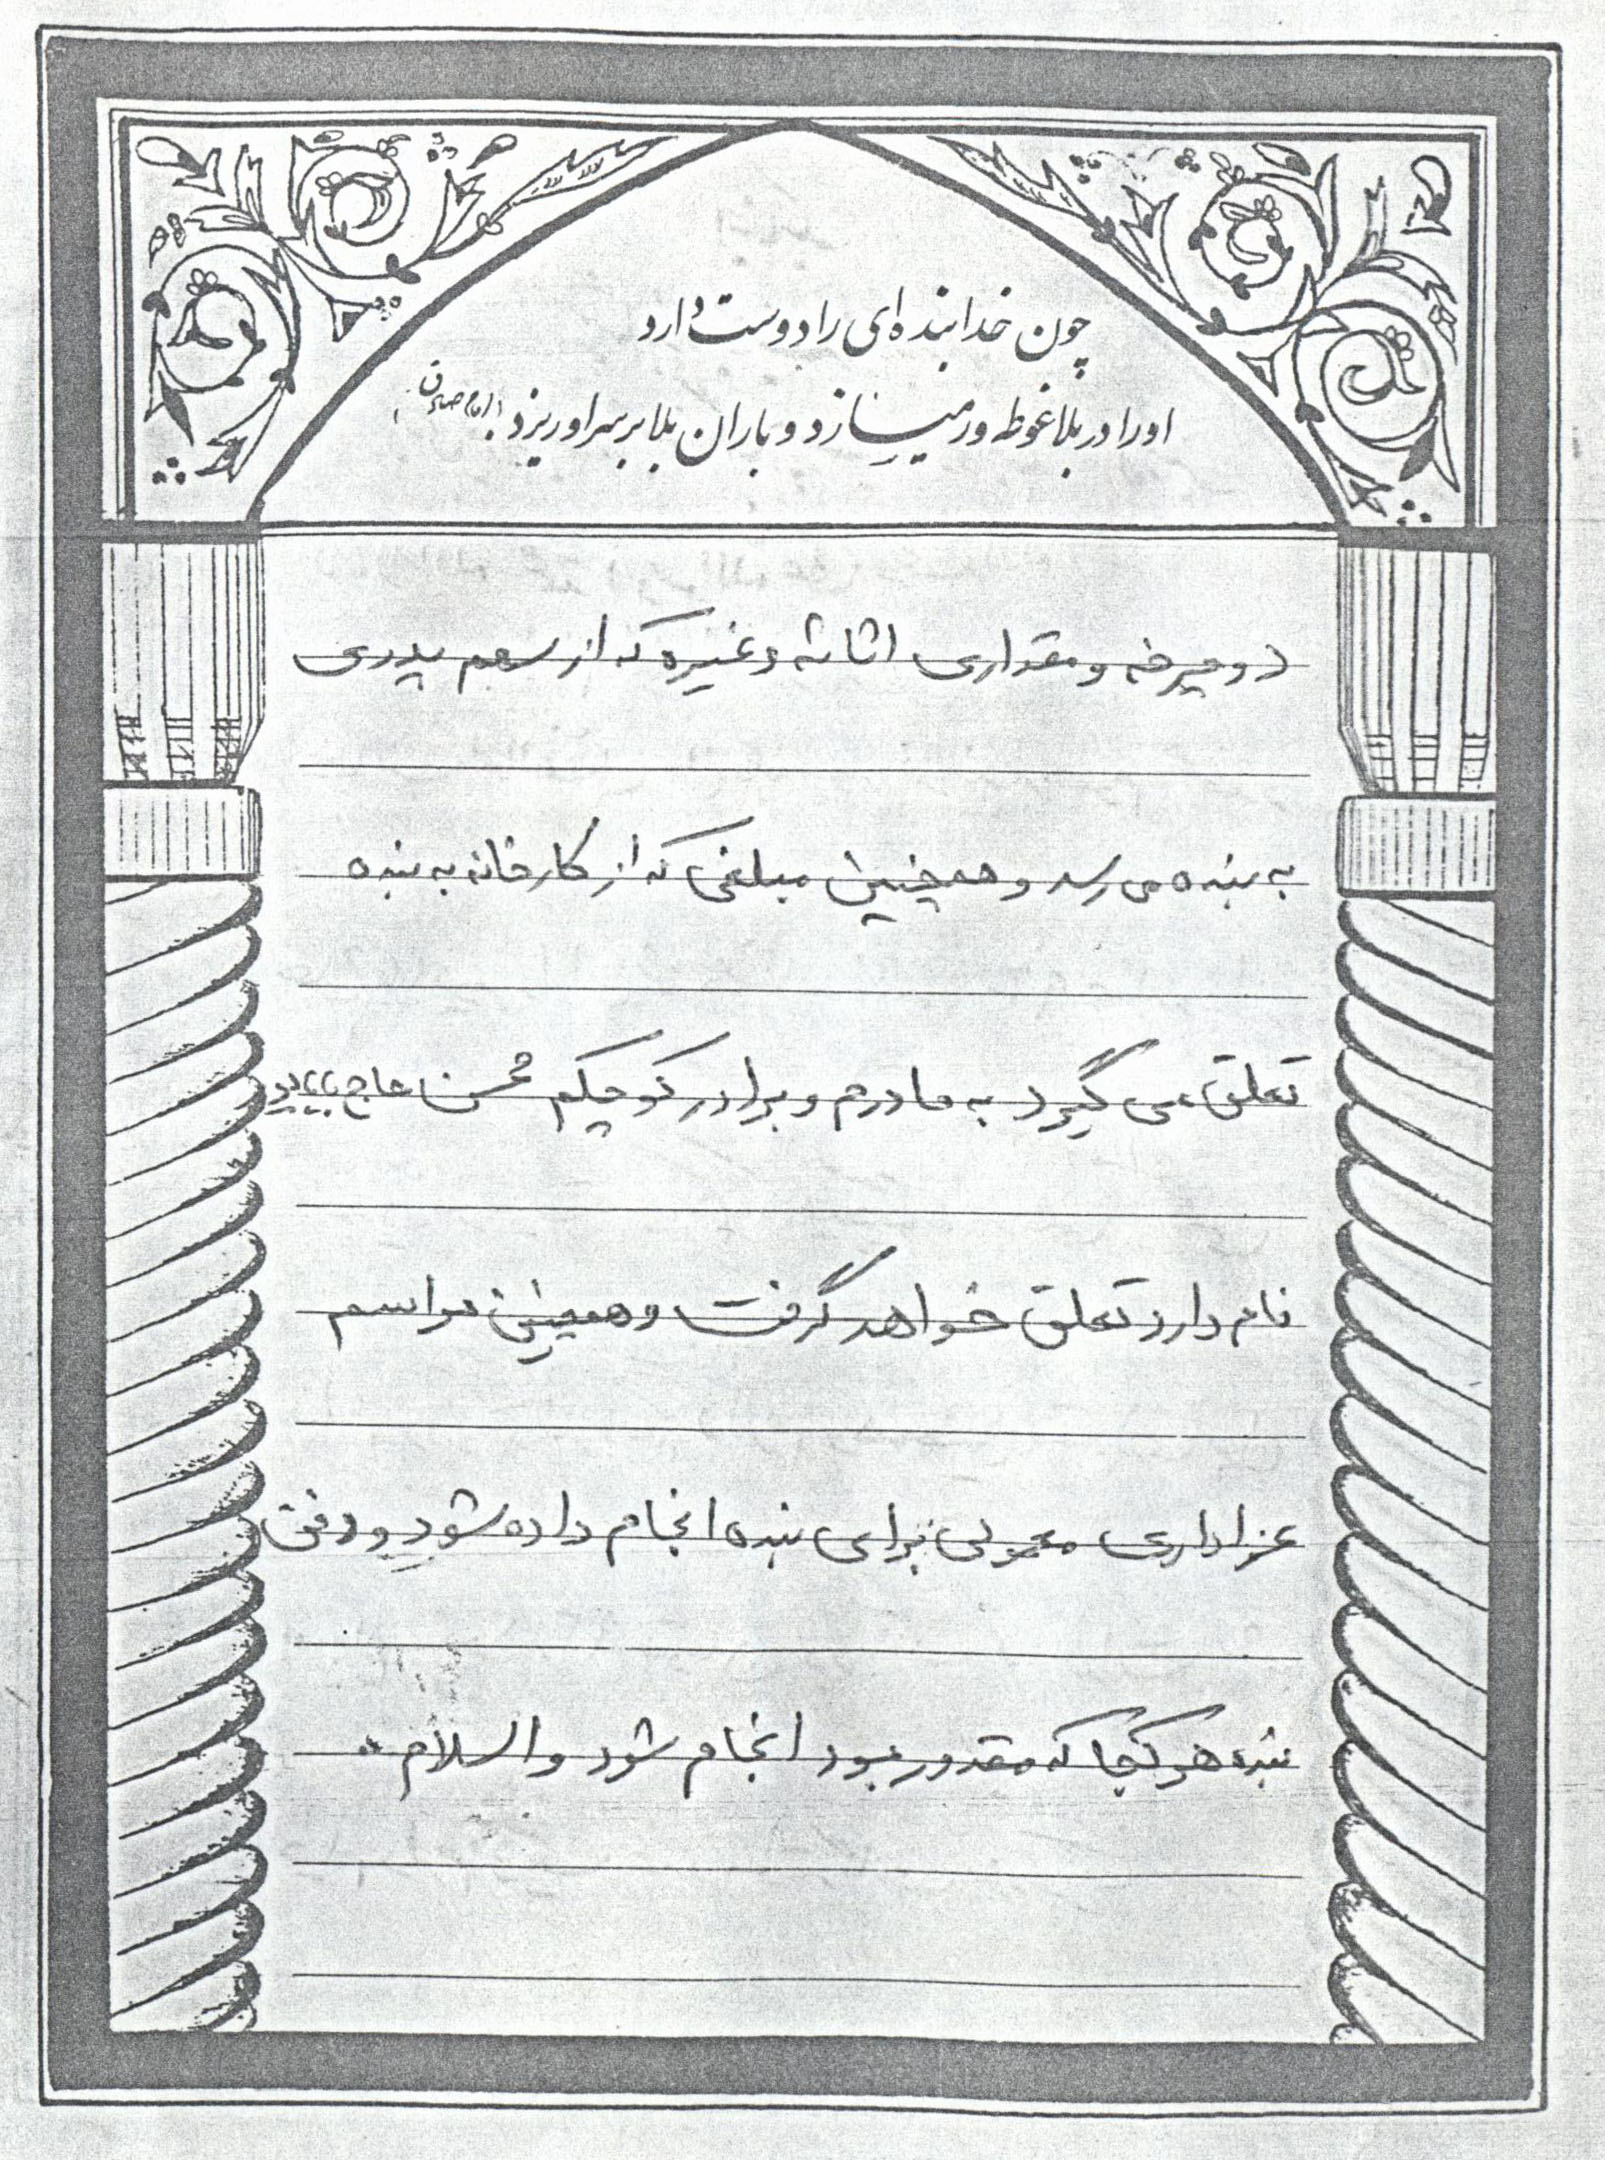 چون خدا بنده ای را دوست دارد
او را در بلا غوطه ور میسازد و باران بلا بر سر او ریزد (امام صادق)
دوچرخه و مقداری اثاثه و غیره که از سهم پدری
به بنده می رسد و همچنین مبلغی که از کارخانه به بنده
تعلق می گیرد به مادرم و برادر کوچکم محسن حاج بابا
نام دارد تعلق خواهد گرفت و همچنین مراسم
عزاداری معمولی برای بنده انجام داده شود و دفن
بنده هر کجا که مقدور بود انجام شود والسلام